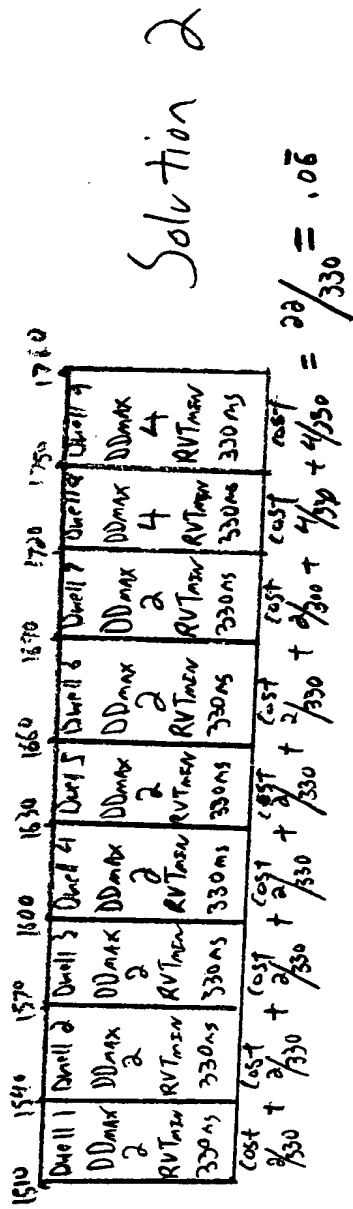 Solution 2
1510 1540 1570 1600 1630 1660 1690 1720 1750 1780
Dwell 1 Dwell 2 Dwell 3 Dwell 4 Dwell 5 Dwell 6 Dwell 7 Dwell 8 Dwell 9
DDMAX DDMAX DDMAX DDMAX DDMAX DDMAX DDMAX DDMAX DDMAX
2 2 2 2 2 2 2 4 4
RVTMIN RVTMIN RVTMIN RVTMIN RVTMIN RVTMIN RVTMIN RVTMIN RVTMIN
330ms 330ms 330ms 330ms 330ms 330ms 330ms 330ms 330ms
cost cost cost cost cost cost cost cost cost
2/330 + 2/330 + 2/330 + 2/330 + 2/330 + 2/330 + 2/300 + 4/330 + 4/330 = 22/330 = .06̄